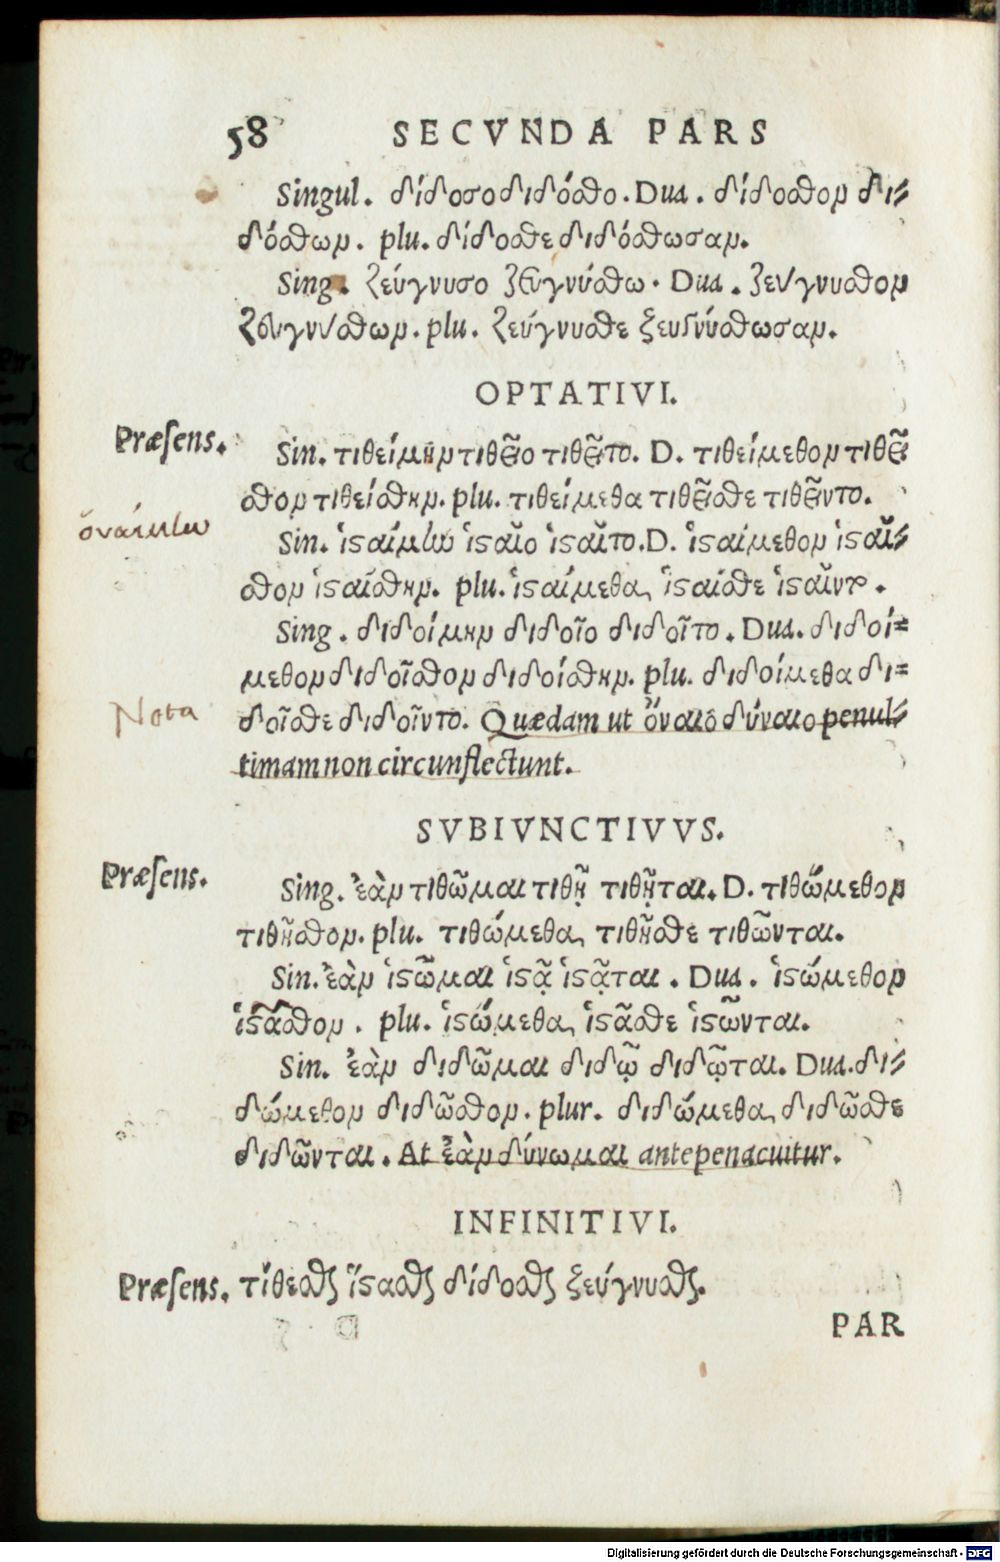 58 SECVNDA PARS
Singul. δίδοσο διδόσθο. Dua. δίδοσθον δι-
δόσθων. plu. δίδοσθε διδόσθωσαν.
Sing. ζεύγνυσο ζευγνύσθω. Dua. ζεύγνυσθον
ζευγνύσθων. plu. ζεύγνυσθε ζευγνύσθωσαν.
OPTATIVI.
Præsens. Sin. τιθείμην τιθεῖο τιθεῖτο. D. τιθείμεθον τιθεῖ
σθον τιθείσθην. plu. τιθείμεθα τιθεῖσθε τιθεῖντο.
ὀναίμην
Sin. ἱσταίμην ἱσταῖο ἱσταῖτο. D. ἱσταίμεθον ἱσταῖ-
σθον ἱσταίσθην. plu. ἱσταίμεθα, ἱσταίσθε ἱσταῖντο.
Sing. διδοίμην διδοῖο διδοῖτο. Dua. διδοί-
μεθον διδοῖσθον διδοίσθην. plu. διδοίμεθα δι-
Nota δοῖσθε διδοῖντο. Quædam ut ὄναιο δύναιο penul-
timam non circunflectunt.
SVBIVNCTIVVS.
Præsens. Sing. ἐὰν τιθῶμαι τιθῇ τιθῆται. D. τιθώμεθον
τιθῆσθον. plu. τιθώμεθα, τιθῆσθε τιθῶνται.
Sin. ἐὰν ἱστῶμαι ἱστᾷ ἱστᾷται. Dua. ἱστώμεθον
ἱστᾶσθον. plu. ἱστώμεθα, ἱστᾶσθε ἱστῶνται.
Sin. ἐὰν διδῶμαι διδῷ διδῷται. Dua. δι-
δώμεθον διδῶσθον. plur. διδώμεθα, διδῶσθε
διδῶνται. At ἐὰν δύνωμαι antepenacuitur.
INFINITIVI.
Præsens. τίθεσθαι ἵστασθαι δίδοσθαι ζεύγνυσθαι.
PAR
Digitalisierung gefördert durch die Deutsche Forschungsgemeinschaft - DFG